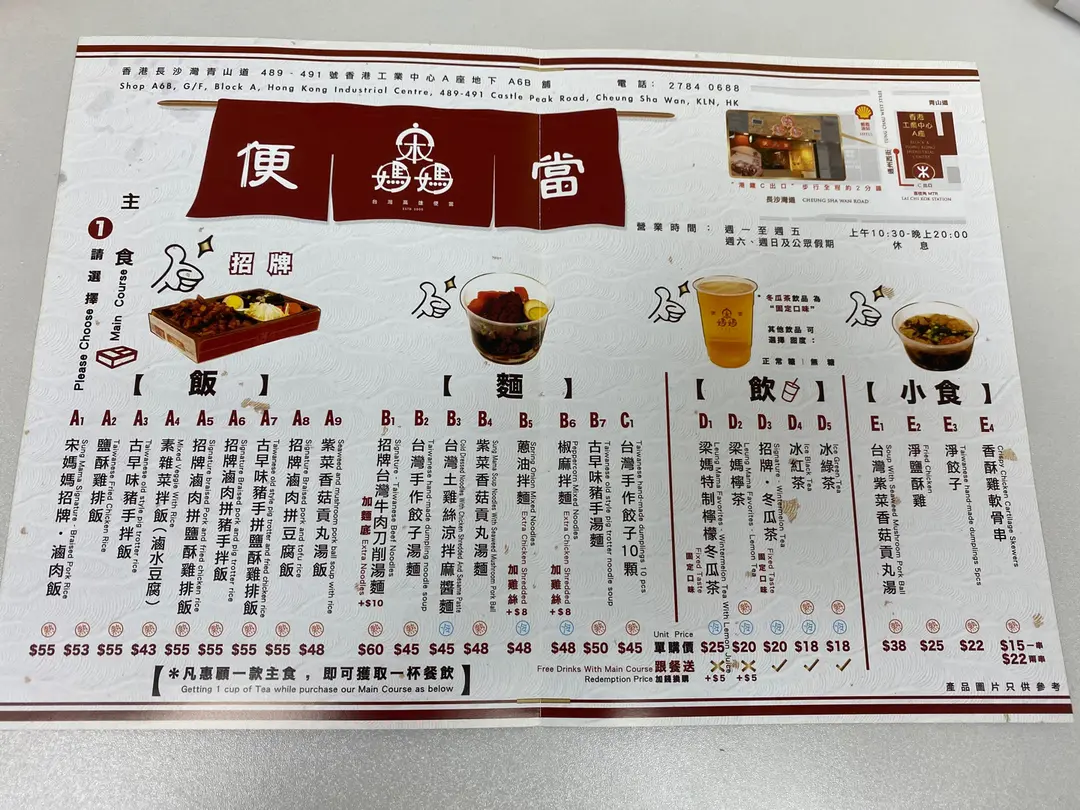 香港長沙灣青山道 489 - 491 號香港工業中心A座地下 A6B 舖 電話: 2784 0688
Shop A6B, G/F, Block A, Hong Kong Industrial Centre, 489-491 Castle Peak Road, Cheung Sha Wan, KLN, HK
便
宋
媽媽
台灣風味便當
當
青山道
香港
工業中心
A座
C 出口
荔枝角 MTR
LAI CHI KOK STATION
"港鐵C出口" 步行全程約2分鐘
長沙灣道 CHEUNG SHA WAN ROAD
營業時間: 週一至週五 上午10:30-晚上20:00
週六、週日及公眾假期 休息
1
主食
Main Course
請選擇
Please Choose
招牌
冬瓜茶飲品 為
"固定口味"
其他飲品 可
選擇 甜度:
正常糖 | 無糖
【 飯 】
A1 宋媽媽招牌・滷肉飯 Sung Mama Signature - Braised Pork Rice 熱 $55
A2 鹽酥雞排飯 Taiwanese Fried Chicken Rice 熱 $53
A3 古早味豬手拌飯 Taiwanese old style pig trotter rice 熱 $55
A4 素雜菜拌飯(滷水豆腐) Mixed Veggie With Rice 熱 $43
A5 招牌滷肉拼鹽酥雞排飯 Signature braised pork and fried chicken rice 熱 $55
A6 招牌滷肉拼豬手拌飯 Signature Braised pork and pig trotter rice 熱 $55
A7 古早味豬手拼鹽酥雞排飯 Taiwanese old style pig trotter and fried chicken rice 熱 $55
A8 招牌滷肉拼豆腐飯 Signature braised pork and tofu rice 熱 $55
A9 紫菜香菇貢丸湯飯 Seaweed and mushroom pork ball soup with rice 熱 $48
【 麵 】
B1 招牌台灣牛肉刀削湯麵 Signature - Taiwanese Beef Noodles 加麵底 Extra Noodles +$10 熱 $60
B2 台灣手作餃子湯麵 Taiwanese hand-made dumpling noodle soup 熱 $45
B3 台灣土雞絲涼拌麻醬麵 Cold Dressed Noodles With Chicken Shredded And Sesame Paste 冷 $45
B4 紫菜香菇貢丸湯麵 Sung Mama Soup Noodles With Seaweed Mushroom Pork Ball 熱 $48
B5 蔥油拌麵 Spring Onion Mixed Noodles 加雞絲 Extra Chicken Shredded +$8 冷 $48
B6 椒麻拌麵 Peppercorn Mixed Noodles 加雞絲 Extra Chicken Shredded +$8 冷 $48
B7 古早味豬手湯麵 Taiwanese old style pig trotter noodle soup 熱 $50
C1 台灣手作餃子10顆 Taiwanese hand-made dumplings 10 pcs 熱 $45
【 飲 】
D1 梁媽特制檸檬冬瓜茶 Leung Mama Favorites - Wintermelon Tea With Lemon Juice 固定口味 Fixed Taste 冷 $25 +$5
D2 梁媽檸茶 Leung Mama Favorites - Lemon Tea 熱 冷 $20 +$5
D3 招牌・冬瓜茶 Signature - Wintermelon Tea 固定口味 Fixed Taste 熱 冷 $20
D4 冰紅茶 Ice Black Tea 熱 冷 $18
D5 冰綠茶 Ice Green Tea 熱 冷 $18
Unit Price
單購價
Free Drinks With Main Course 跟餐送
Redemption Price 加錢換購
【 小食 】
E1 台灣紫菜香菇貢丸湯 Soup With Seaweed Mushroom Pork Ball 熱 $38
E2 淨鹽酥雞 Fried Chicken 熱 $25
E3 淨餃子 Taiwanese hand-made dumplings 5pcs 熱 $22
E4 香酥雞軟骨串 Crispy Chicken Cartilage Skewers 熱 $15一串
$22兩串
【 *凡惠顧一款主食,即可獲取一杯餐飲 】
Getting 1 cup of Tea while purchase our Main Course as below
產品圖片只供參考